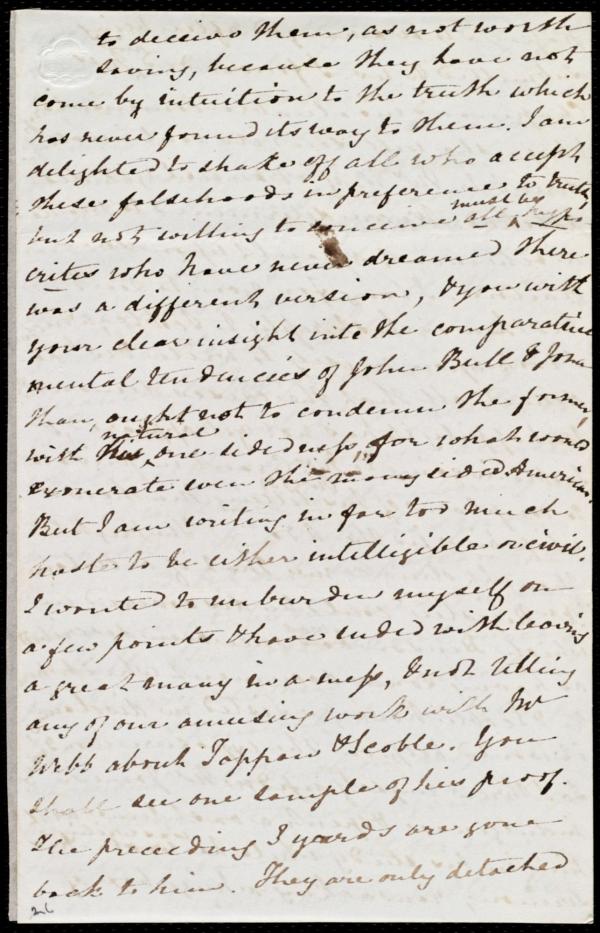 to deceive them, as not worth
saving, because they have not
come by intuition to the truth which
has never found its way to them. I am
delighted to shake off all who accept
these falsehoods in preference to truth,
but not willing to conceive all must be hypo
crites who have never dreamed there
was a different version, & you with
your clear insight into the comparative
mental tendencies of John Bull & Jona
than, ought not to condemn the former,
with his natural one sidedness, for what would
exonerate even the many sided American.
But I am writing in far too much
haste to be either intelligible or civil.
I wanted to unburden myself on
a few points & have ended with leaving
a great many in a mess, & not telling
any of our amusing work with Mr
Webb about Tappan & Scoble. You
shall see one sample of his proof.
The preceding 3 yards are gone
back to him. They are only detached
26